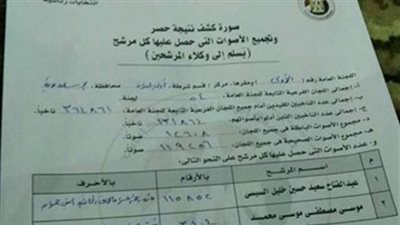 انتخابات رئاسية
صورة كشف نتيجة حصر
وتجميع الأصوات التى حصل عليها كل مرشح
(يسلم إلى وكلاء المرشحين)
اللجنة العامة رقم ( الأولى ) ومقرها: مركز / قسم شرطة محافظة:
أ. إجمالى اللجان الفرعية التابعة للجنة العامة: ٥٤ لجنة.
ب. إجمالى عدد الناخبين المقيدين أمام جميع اللجان الفرعية التابعة للجنة العامة: ٣٦٤٨٦١ ناخباً.
ج. إجمالى عدد الناخبين الذين أدلوا بأصواتهم: ١٣١٨٦٤ ناخباً.
د. مجموع الأصوات الباطلة فى جميع اللجان: ١٢٦٠٨ صوتاً.
هـ. مجموع الأصوات الصحيحة فى جميع اللجان: ١١٩٢٥٦ صوتاً.
و. عدد الأصوات التى حصل عليها كل مرشح على النحو التالى:
م اسم المرشح بالأرقام بالأحرف
١ عبدالفتاح سعيد حسين خليل السيسى ١١٥٨٥٢
٢ موسى مصطفى موسى محمد